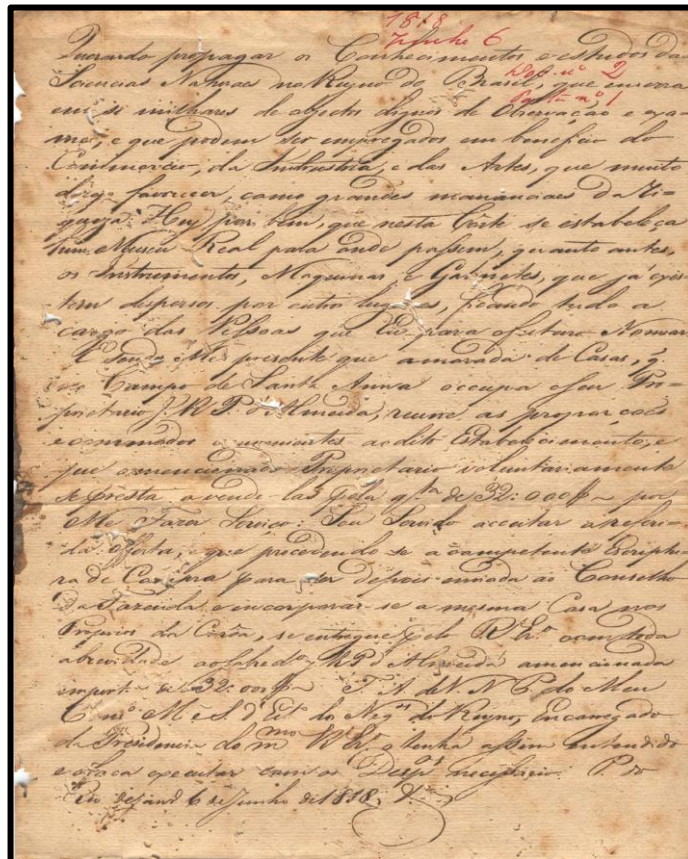 1818
Junho 6
Querendo propagar os Conhecimentos e estudos das
Doc. nº 2
Sciencias Naturaes no Reyno do Brasil, que encerra
Pasta nº 1
em si milhares de objectos dignos de Observação e exa-
me, e que podem ser empregados em beneficio do
Commercio, da Industria, e das Artes, que muito
desejo favorecer, como grandes mananciaes da Ri-
queza: Hey por bem, que nesta Côrte se estabeleça
hum Museu Real para onde passem, quanto antes,
os Instrumentos, Maquinas e Gabinetes, que já exis-
tem dispersos por outros lugares, ficando tudo a
cargo das Pessoas que Eu para o futuro Nomear.
E sendo-Me presente que a morada de Casas, q.
no Campo de Santa Anna occupa o seu Pro-
prietario J. R. P. d'Almeida, reune as proporçoes
e commodos convenientes ao dito Estabelecimento, e
que o mencionado Proprietario voluntariamente
se presta a vende-las pela q.tia de 32:000$ por
Me Fazer Serviço: Sou Servido acceitar a referi-
da offerta, e que procedendo-se a competente Escriptu-
ra de Compra para ser depois enviada ao Conselho
da Fazenda e incorporar-se a mesma Casa nos
Proprios da Corôa, se entregue pelo R. Er.º com toda
a brevidade ao sobredo. J. R. P. d'Almeida a mencionada
import.ª de 32:000$ T. A. de V. N. P. do Meu
Cons.º M. e S. d'Est.º do Neg.os do Reyno, Encarregado
da Presidencia do m.mo R. Er.º o tenha assim entendido
e o faça executar com os Desp.os necessarios. P. do
Rio de Jan.º 6 de Junho de 1818.